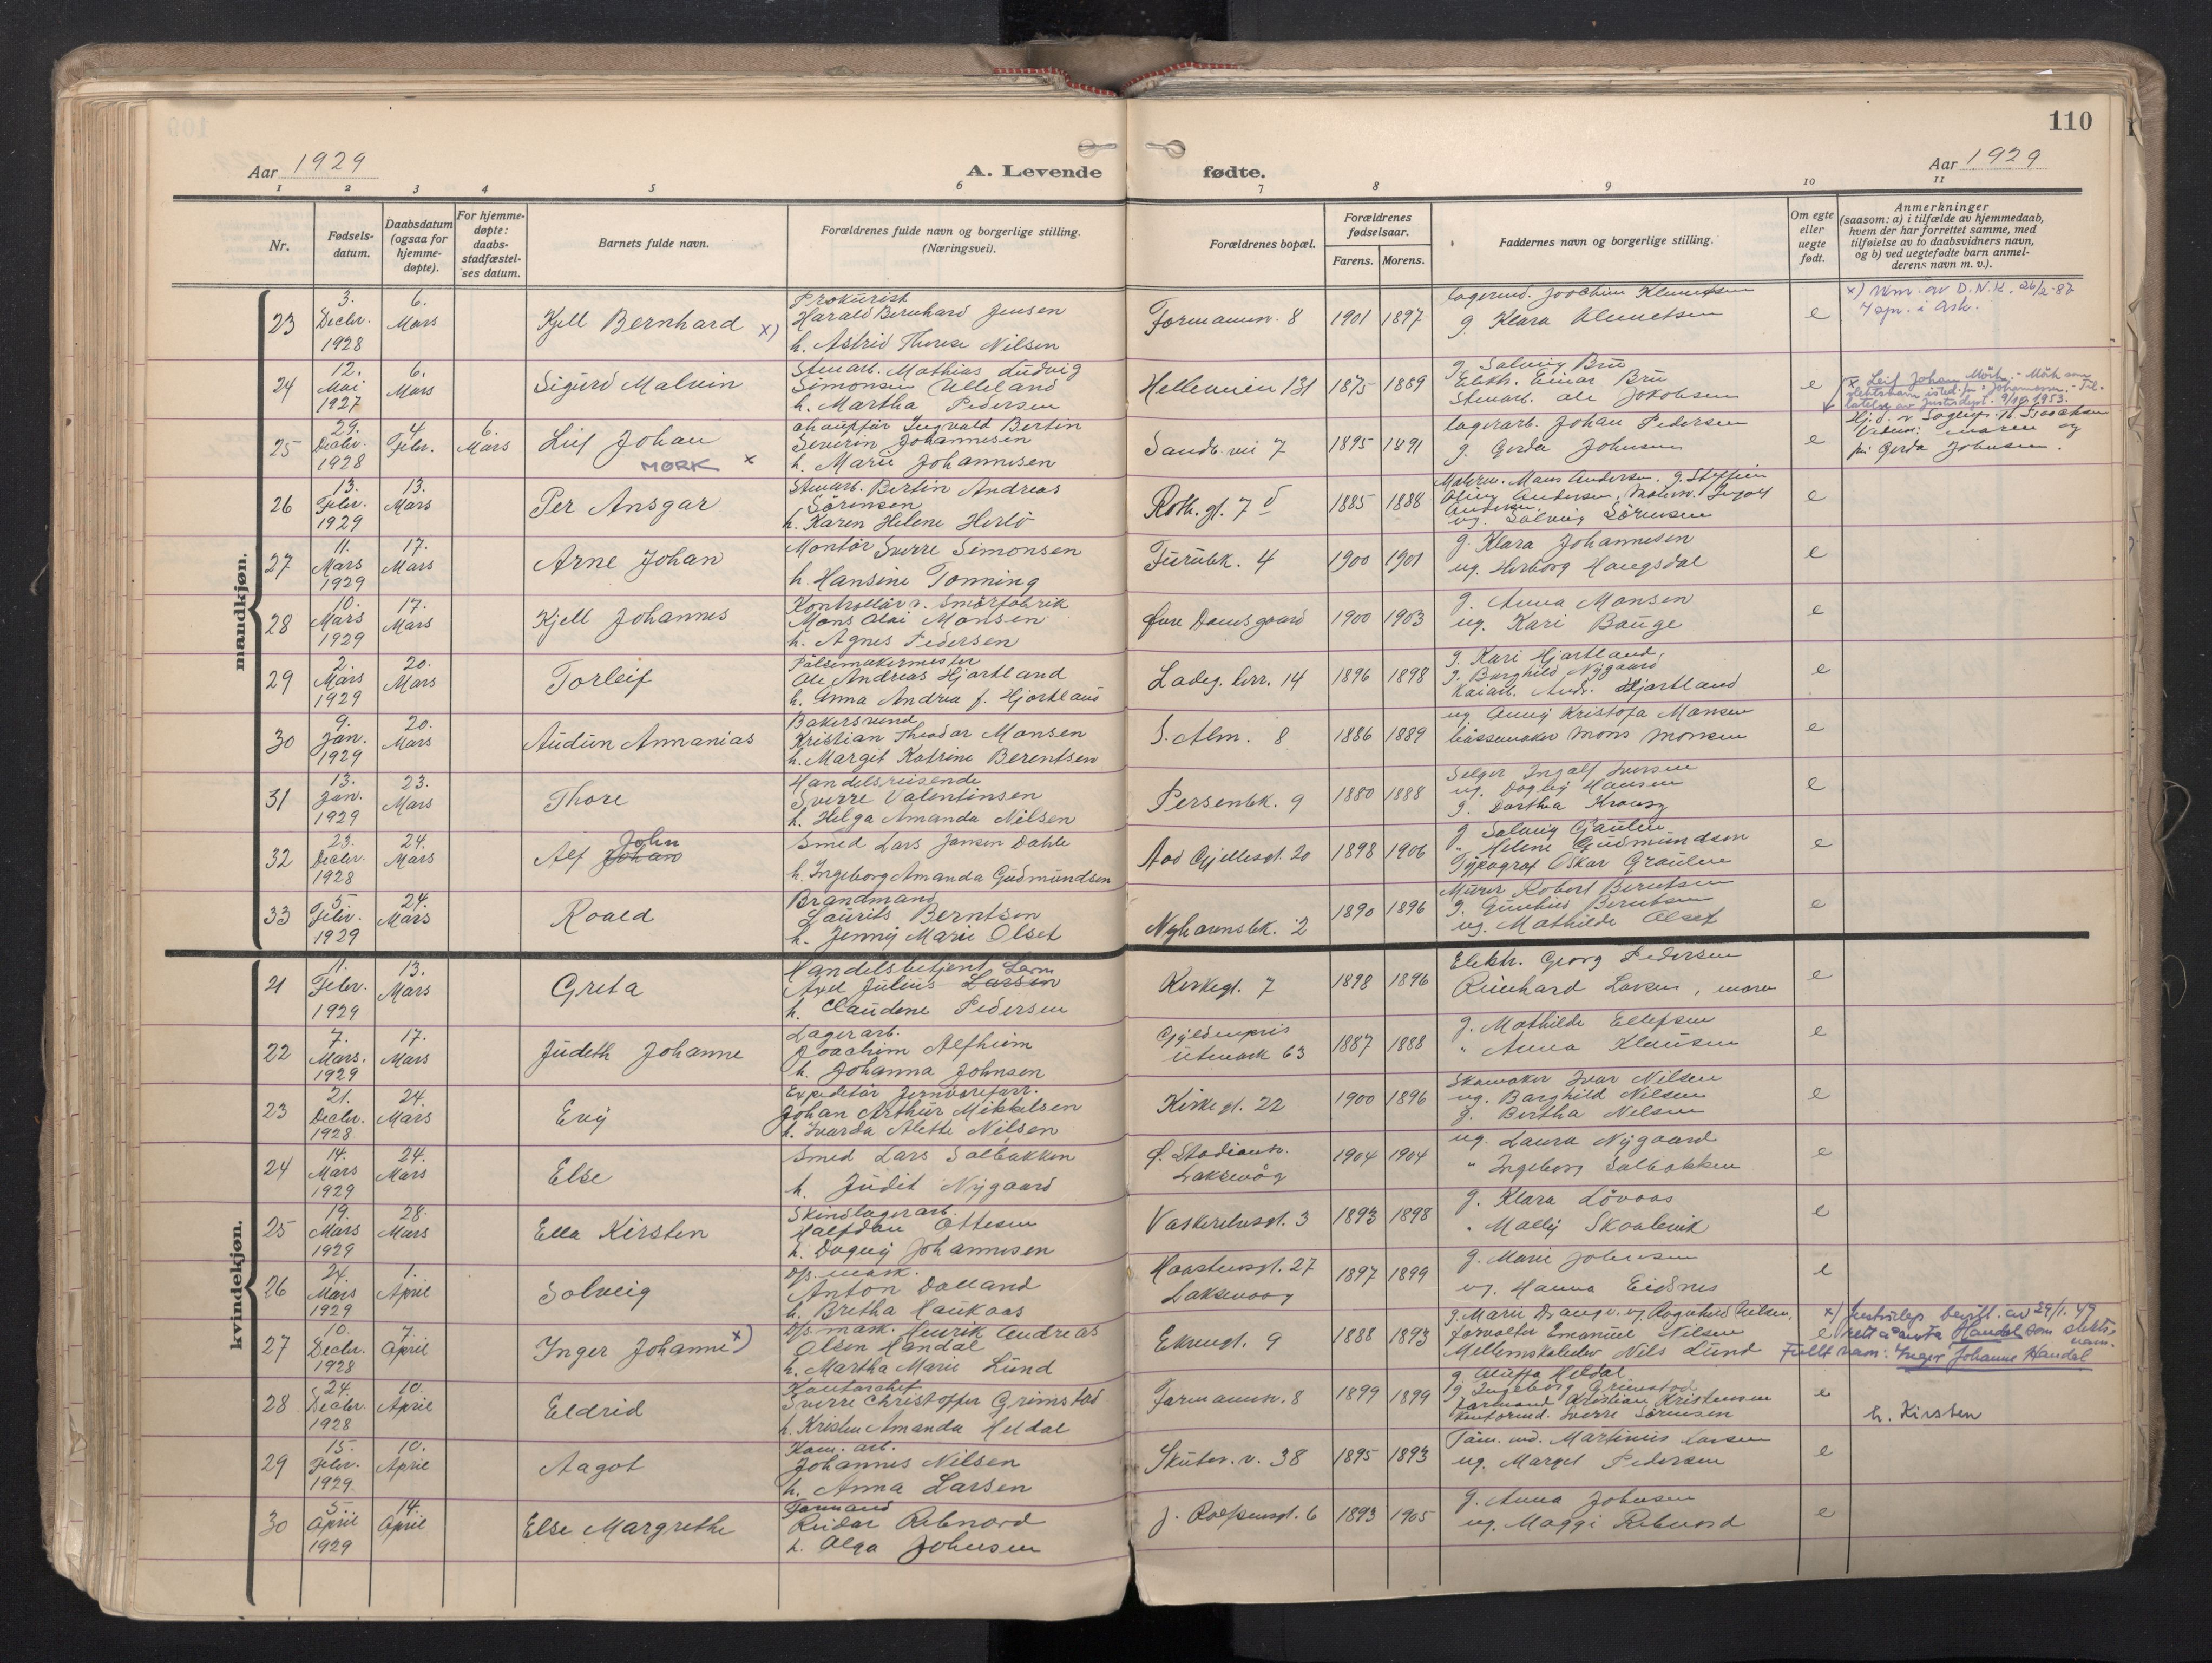 110
Aar 1929
A. Levende
fødte.
Aar 1929
1 2 3 4 5 6 7 8 9 10 11
Nr.
Fødsels-
datum.
Daabsdatum
(ogsaa for
hjemme-
døpte).
For hjemme-
døpte:
daabs-
stadfæstel-
ses datum.
Barnets fulde navn.
Forældrenes fulde navn og borgerlige stilling.
(Næringsvei).
Forældrenes bopæl.
Forældrenes
fødselsaar.
Farens. Morens.
Faddernes navn og borgerlige stilling.
Om egte
eller
uegte
født.
Anmerkninger
(saasom: a) i tilfælde av hjemmedaab,
hvem der har forrettet samme, med
tilføielse av to daabsvidners navn,
og b) ved uegtefødte barn anmel-
derens navn m. v.).
mandkjøn.
23
3.
Decbr.
1928
6.
Mars
Kjell Bernhard x)
Prokurist
Harald Bernhard Jensen
h. Astrid Therese Nilsen
Formannsv. 8
1901 1897
lagermd. Joachim Klemetsen
g. Klara Klemetsen
e
x) Utm. av D.N.K. 26/2-87
24
12.
Mai
1927
6.
Mars
Sigurd Malvin
Stenarb. Mathias Ludvig
Simonsen Ulleland
h. Martha Pedersen
Helleveien 131
1875 1889
g. Solveig Bru
Elektr. Einar Bru
Stenarb. Ole Jakobsen
e
x Leif Johan Mörk. - Mörk som
slektsnavn isted. for "Johannessen". - Til-
latelse av Justisdept. 9/10 1953.
25
29.
Decbr.
1928
4.
Febr.
6.
Mars
Leif Johan
MØRK x
Chauffør Ingvald Bertin
Severin Johannesen
h. Marie Johannesen
Sandv. vei 7
1895 1891
lagerarb. Johan Pedersen
g. Gerda Johnsen
e
Hj.d. v. Sogepr. H. Isaachsen
Vidne: moren og
fr. Gerda Johnsen.
26
13.
Febr.
1929
13.
Mars
Per Ansgar
Stenarb. Bertin Andreas
Sörensen
h. Karen Helene Herlö
Roth. gt. 7 d
1885 1888
Malerm. Mons Andersen. g. Steffien
Oliny Andersen, Malerm. Ingolf
Andersen,
ug. Solveig Sörensen
e
27
11.
Mars
1929
17.
Mars
Arne Johan
Montör Sverre Simonsen
h. Hansine Tonning
Furubk. 4
1900 1901
g. Klara Johannesen
ug. Herborg Haugsdal
e
28
10.
Mars
1929
17.
Mars
Kjell Johannes
Kontrollör v. Smörfabrik
Mons Olai Monsen
h. Agnes Pedersen
Øvre Damsgaard
1900 1903
g. Anna Monsen
ug. Kari Bauge
e
29
2.
Mars
1929
20.
Mars
Torleif
Pölsemakermester
Ole Andreas Hjortland
h. Anna Andrea f. Hjortland
Ladeg. terr. 14
1896 1898
g. Kari Hjortland,
g. Borghild Nygaard
Kaiarb. Andr. Hjortland
e
30
9.
Jan.
1929
20.
Mars
Audun Annanias
Bakersvend
Kristian Theodor Monsen
h. Margit Katrine Berentsen
S. Alm. 8
1886 1889
ug. Anny Kristofa Monsen
bössemaker Mons Monsen
e
31
13.
Jan.
1929
23.
Mars
Thore
Handelsreisende
Sverre Valentinsen
h. Helga Amanda Nilsen
Persenbk. 9
1880 1888
Selger Ingolf Iversen
ug. Dagny Hansen
g. Dorthea
e
32
23.
Decbr.
1928
24.
Mars
John
Alf Johan
Smed Lars Jansen Dahle
h. Ingeborg Amanda Gudmundsen
Aad Gjellesgt. 20
1898 1906
g. Solveig
" Helene Gudmundson
Typograf Oskar
e
33
5.
Febr.
1929
24.
Mars
Roald
Brandmand
Laurits Berntsen
h. Jenny Marie Olset
Nyhavnsbk. 2
1890 1896
Murer Robert Berntsen
g. Gunhild Berntsen
ug. Mathilde Olset
e
kvindekjøn.
21
11.
Febr.
1929
13.
Mars
Greta
Handelsbetjent
Axel Julius Larsen
h. Claudene Pedersen
Kirkegt. 7
1898 1896
Elektr. Georg Pedersen
Reinhard Larsen, moren
e
22
7.
Mars.
1929
17.
Mars
Judeth Johanne
Lagerarb.
Joachim Alfheim
h. Johanna Johnsen
Gyldenpris
Utmark 63
1887 1888
g. Mathilde Ellefsen
" Anna Klausen
e
23
21.
Decbr.
1928
24.
Mars
Evy
Expeditör Jernvareforr.
Johan Arthur Mikkelsen
h. Ivarda Alette Nilsen
Kirkegt. 22
1900 1896
Skomaker Ivar Nilsen
ug. Borghild Nilsen
g. Bertha Nilsen
e
24
14.
Mars
1929
24.
Mars
Else
Smed Lars Solbakken
h. Judit Nygaard
Ø. Stadionv.
Laksevåg
1904 1904
ug. Laura Nygaard
" Ingeborg Solbakken
e
25
19.
Mars
1929
28.
Mars
Ella Kirsten
Skindlagerarb.
Halfdan Ottesen
h. Dagny Johannesen
Vaskerelvsgt. 3
1893 1898
g. Klara Lövaas
" Mally Skaalevik
e
26
24.
Mars
1929
1.
April
Solveig
Op. mask.
Anton Dalland
h. Bretha Haukaas
Haastensgt. 27
Laksevaag
1897 1899
g. Marie Johnsen
ug. Hanna Eidsnes
e
27
10.
Decbr.
1928
7.
April
Inger Johanne x)
Op. mask. Henrik Andreas
Olsen Handal
h. Martha Marie Lund
Ekrengt. 9
1888 1893
g. Marie Drange. ug. Ragnhild Nilsen,
forvalter Emanuel Nilsen
Mellemskoleelev Nils Lund
e
x) Justisdep. bevilt. av 29/1.49
rett å anta Handal som slekts-
navn.
Fullt navn: Inger Johanne Handal
28
24.
Decbr.
1928
10.
April
Eldrid
Kontorchef
Sverre Christoffer Grimstad
h. Kristen Amanda Heldal
Formannsv. 8
1899 1899
g. Aluffa Heldal
g. Ingeborg Grimstad
formand Kristian Kristensen
Kontormd. Sverre Sörensen
e
h. Kirsten
29
15.
Febr.
1929
10.
April
Aagot
Kom. arb.
Johannes Nilsen
h. Anna Larsen
Skutev. v. 38
1895 1893
Töm. md. Martinus Larsen
ug. Margit Pedersen
e
30
5.
April
1929
14.
April
Else Margrethe
Formand
Reidar Rebnord
h. Olga Johnsen
J. Rolfsensgt. 6
1893 1905
g. Anna Johnsen
ug. Maggi Rebnord
e